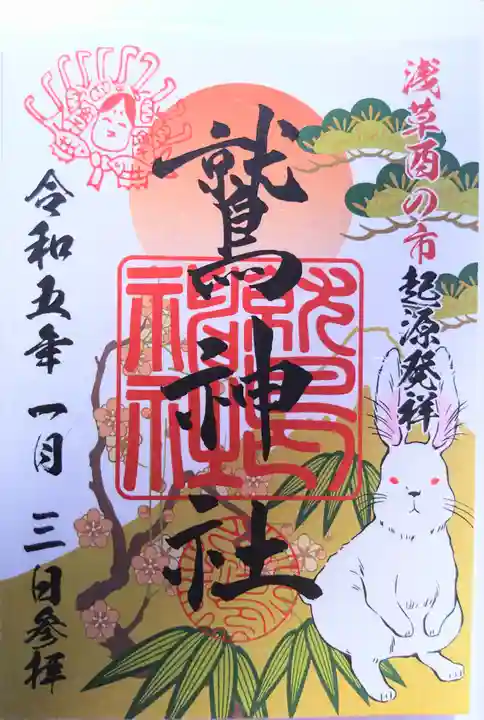 浅草酉の市起源発祥
鷲神社
鷲神社
令和五年一月三日参拝